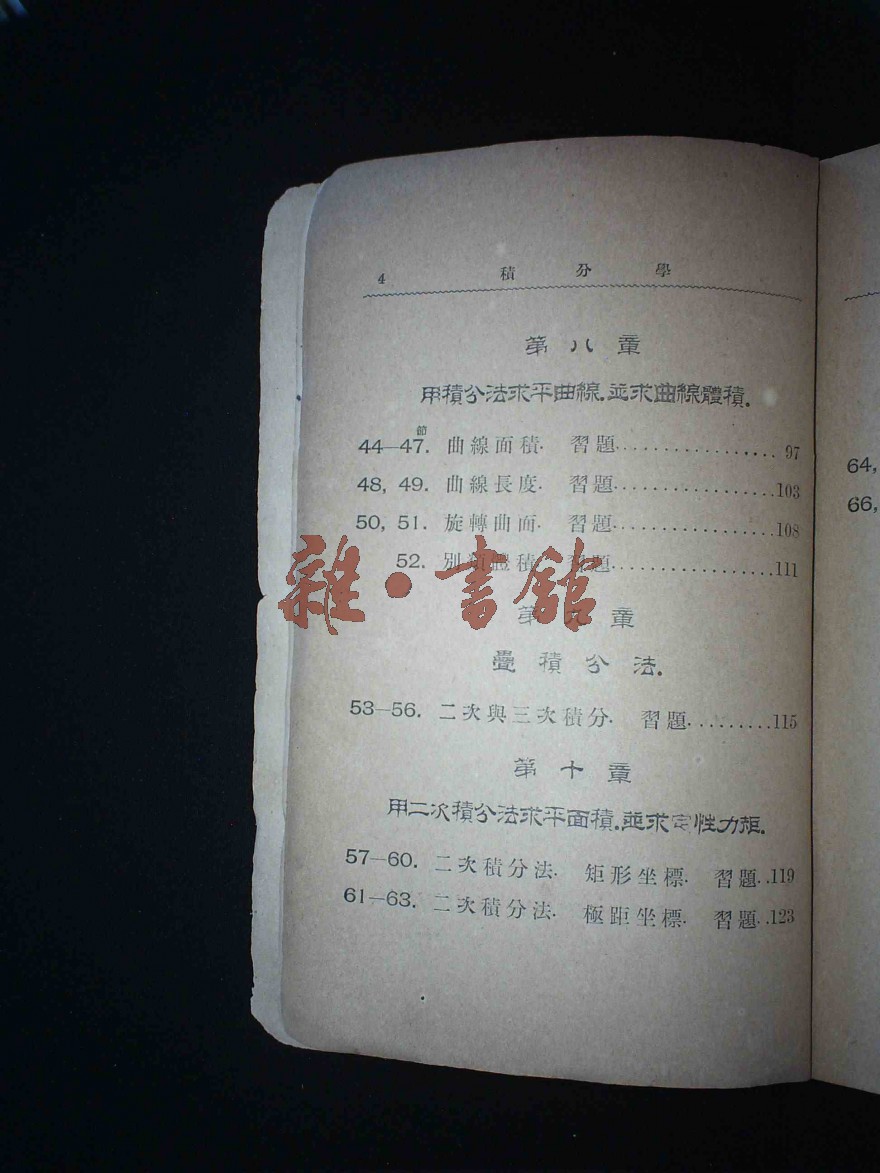 4 積分學
第八章
用積分法求平曲線.並求曲線體積.
節
44—47. 曲線面積. 習題................97
48, 49. 曲線長度. 習題................103
50, 51. 旋轉曲面. 習題................108
52. 別類體積. 習題................111
雜·書館
第九章
疊積分法.
53—56. 二次與三次積分. 習題.........115
第十章
用二次積分法求平面積.並求定性力矩.
57—60. 二次積分法. 矩形坐標. 習題..119
61—63. 二次積分法. 極距坐標. 習題..123
64,
66,